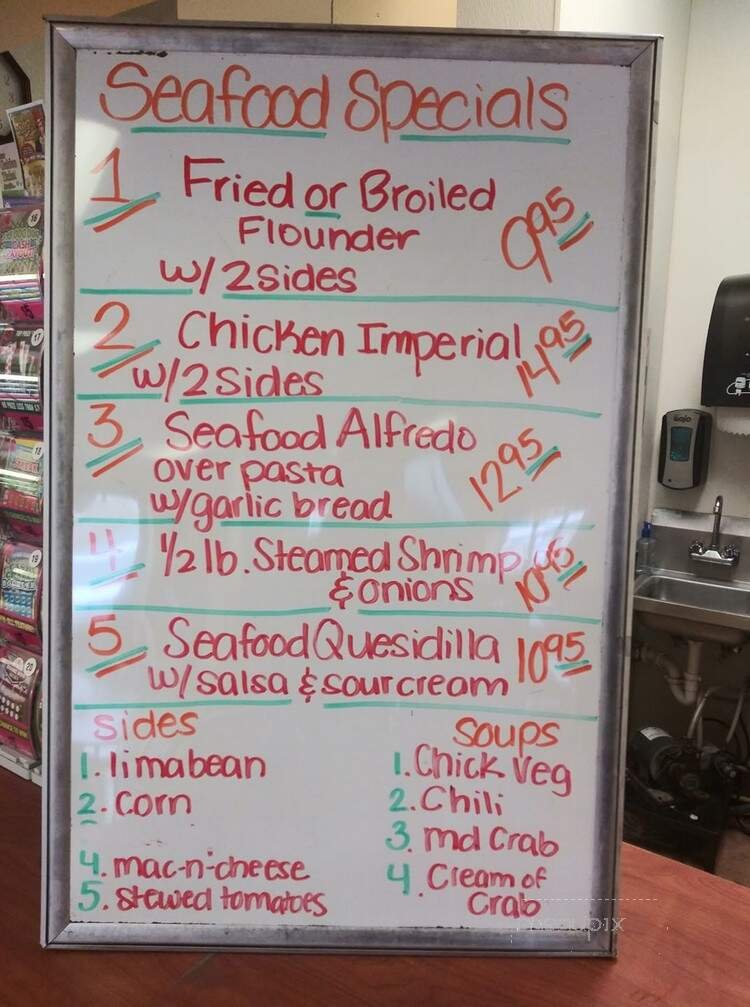 Seafood Specials
1 Fried or Broiled 9 95
Flounder
w/ 2 sides
2 Chicken Imperial 14 95
w/ 2 sides
3 Seafood Alfredo 12 95
over pasta
w/ garlic bread
4 1/2 lb. Steamed Shrimp 10 95
& onions
5 Seafood Quesidilla 10 95
w/ salsa & sour cream
sides
1. lima bean
2. corn
4. mac-n-cheese
5. stewed tomatoes
soups
1. Chick Veg
2. Chili
3. md Crab
4. Cream of
Crab